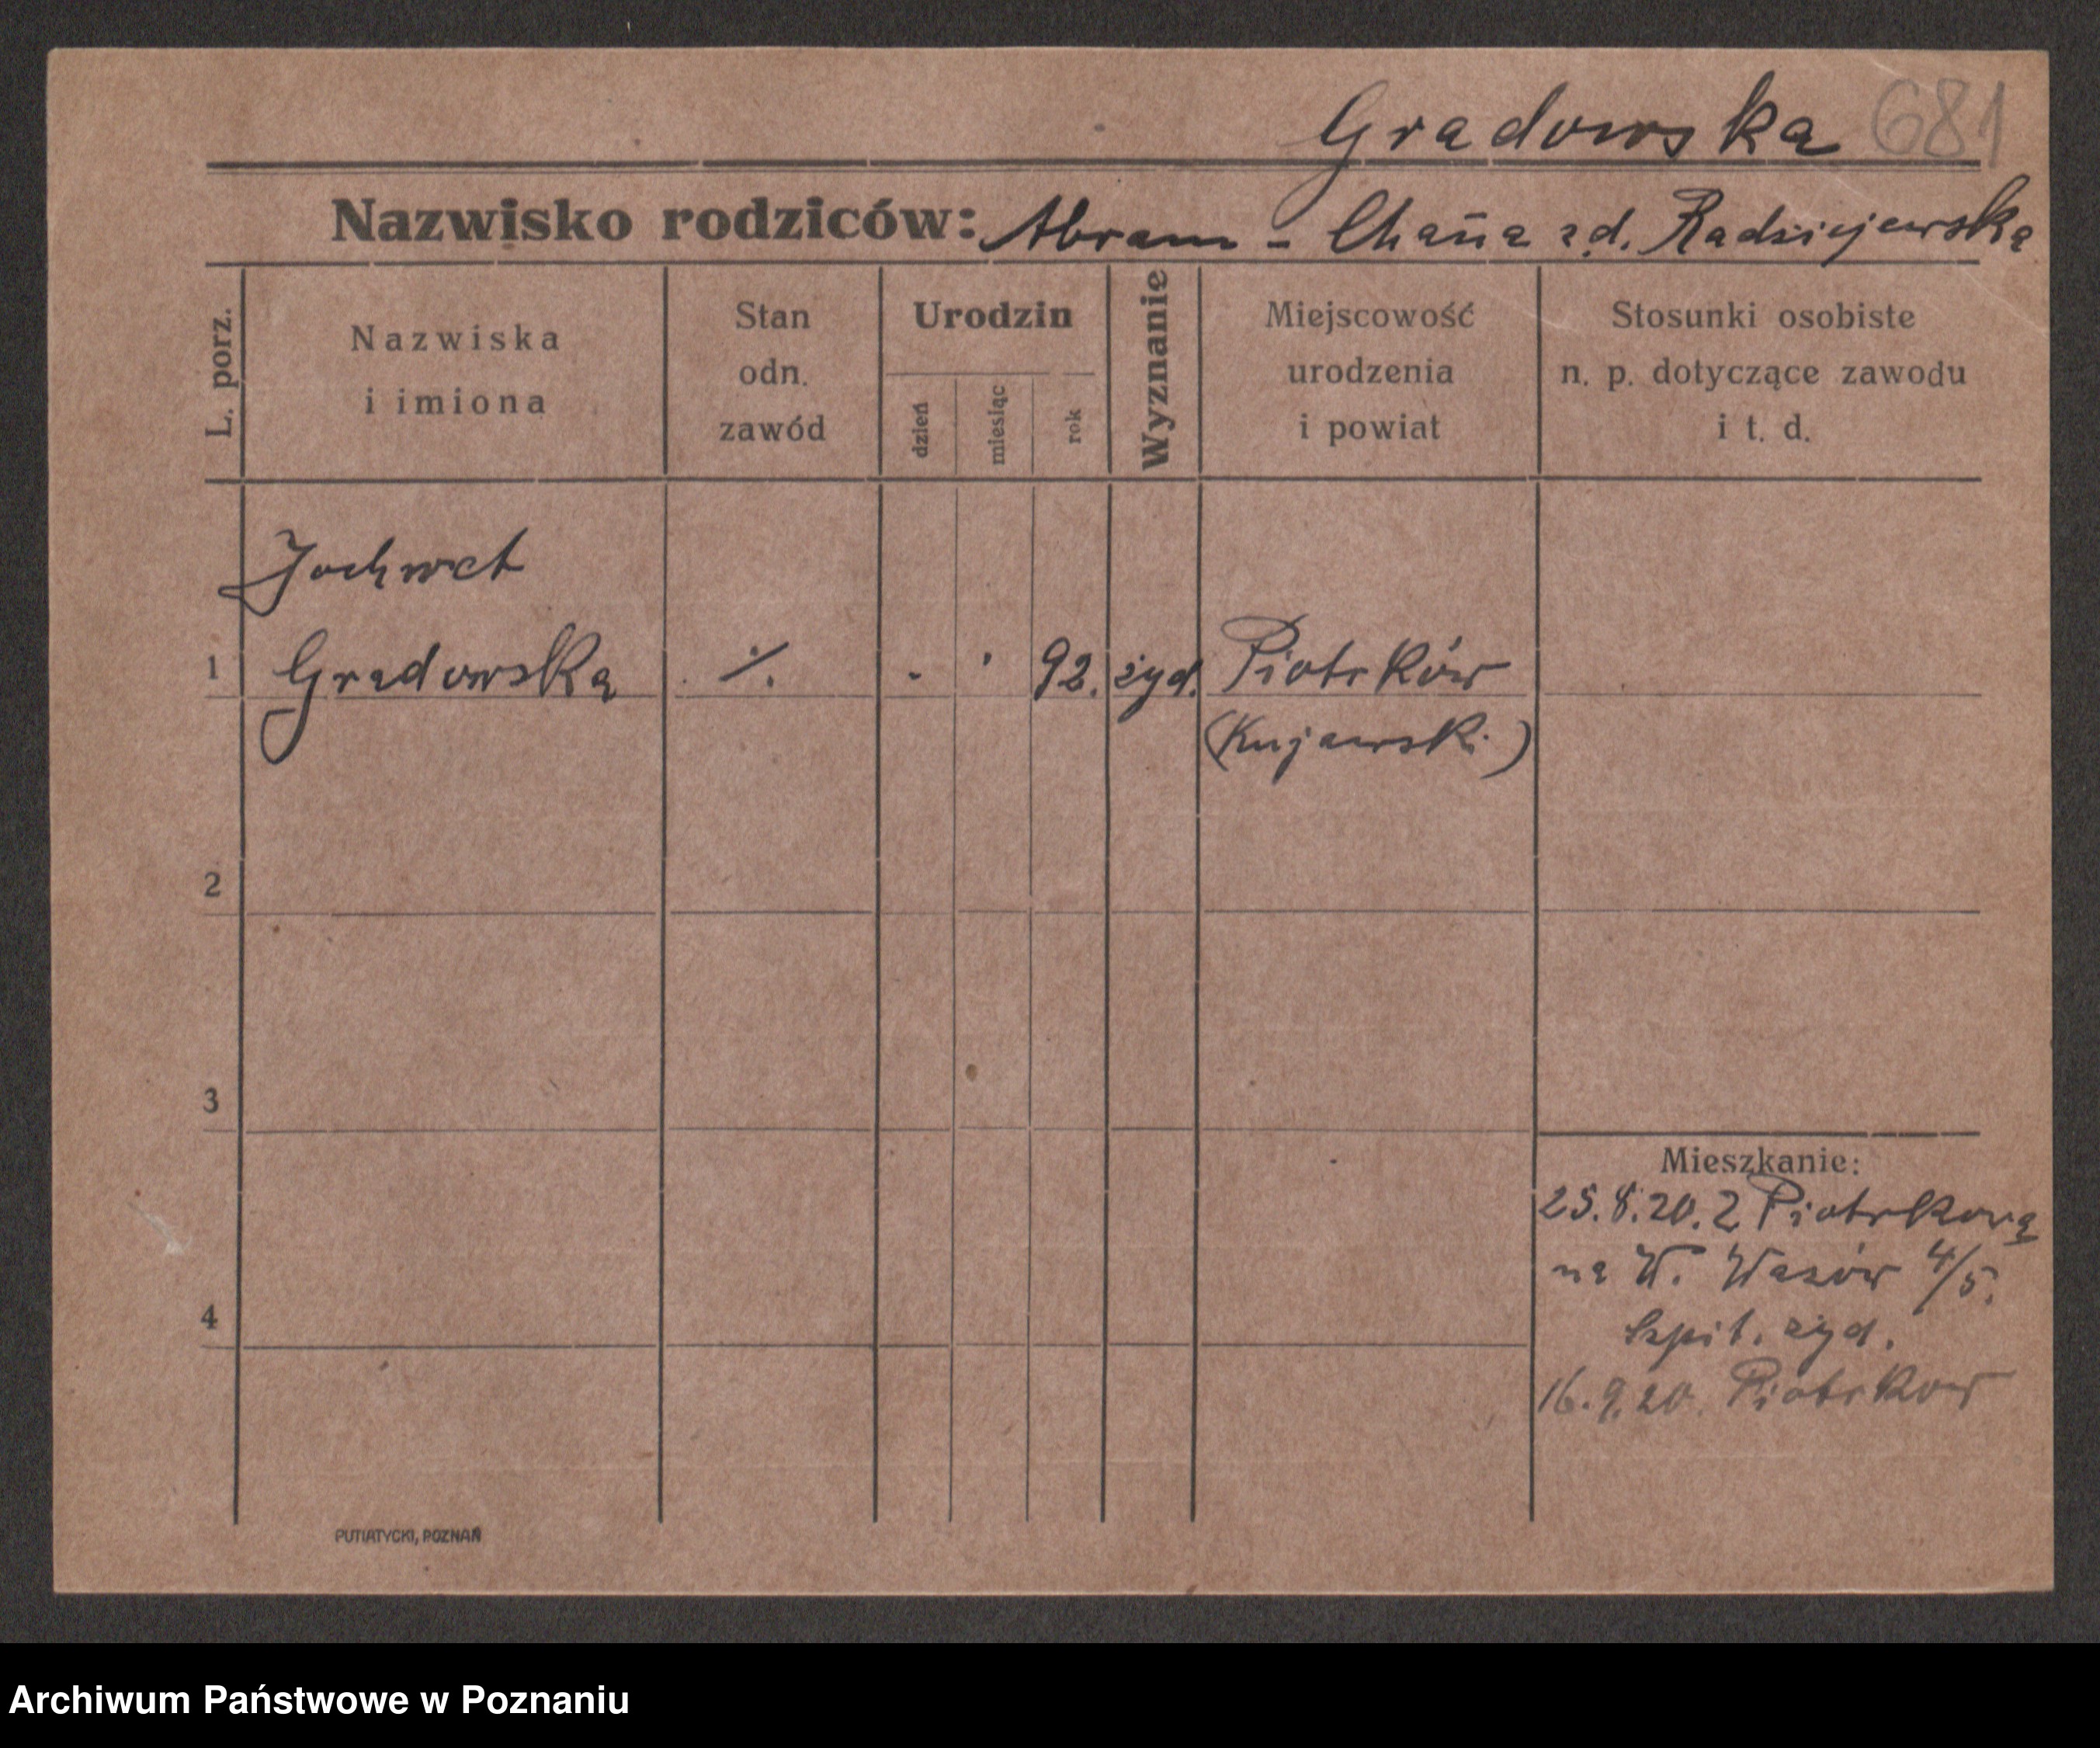 Gradowska 681
Nazwisko rodziców: Abram - Chana zd. Radziejewska
L. porz.
Nazwiska
i imiona
Stan
odn.
zawód
Urodzin
dzień
miesiąc
rok
Wyznanie
Miejscowość
urodzenia
i powiat
Stosunki osobiste
n. p. dotyczące zawodu
i t. d.
Jochwet
1 Gradowska ./. - ' 92. żyd. Piotrków
(Kujawski)
2
3
4
Mieszkanie:
25.8.20. z Piotrkowa
na W. Wazów 4/5.
Szpit. żyd.
16.9.20. Piotrkow
PUTIATYCKI, POZNAŃ
Archiwum Państwowe w Poznaniu